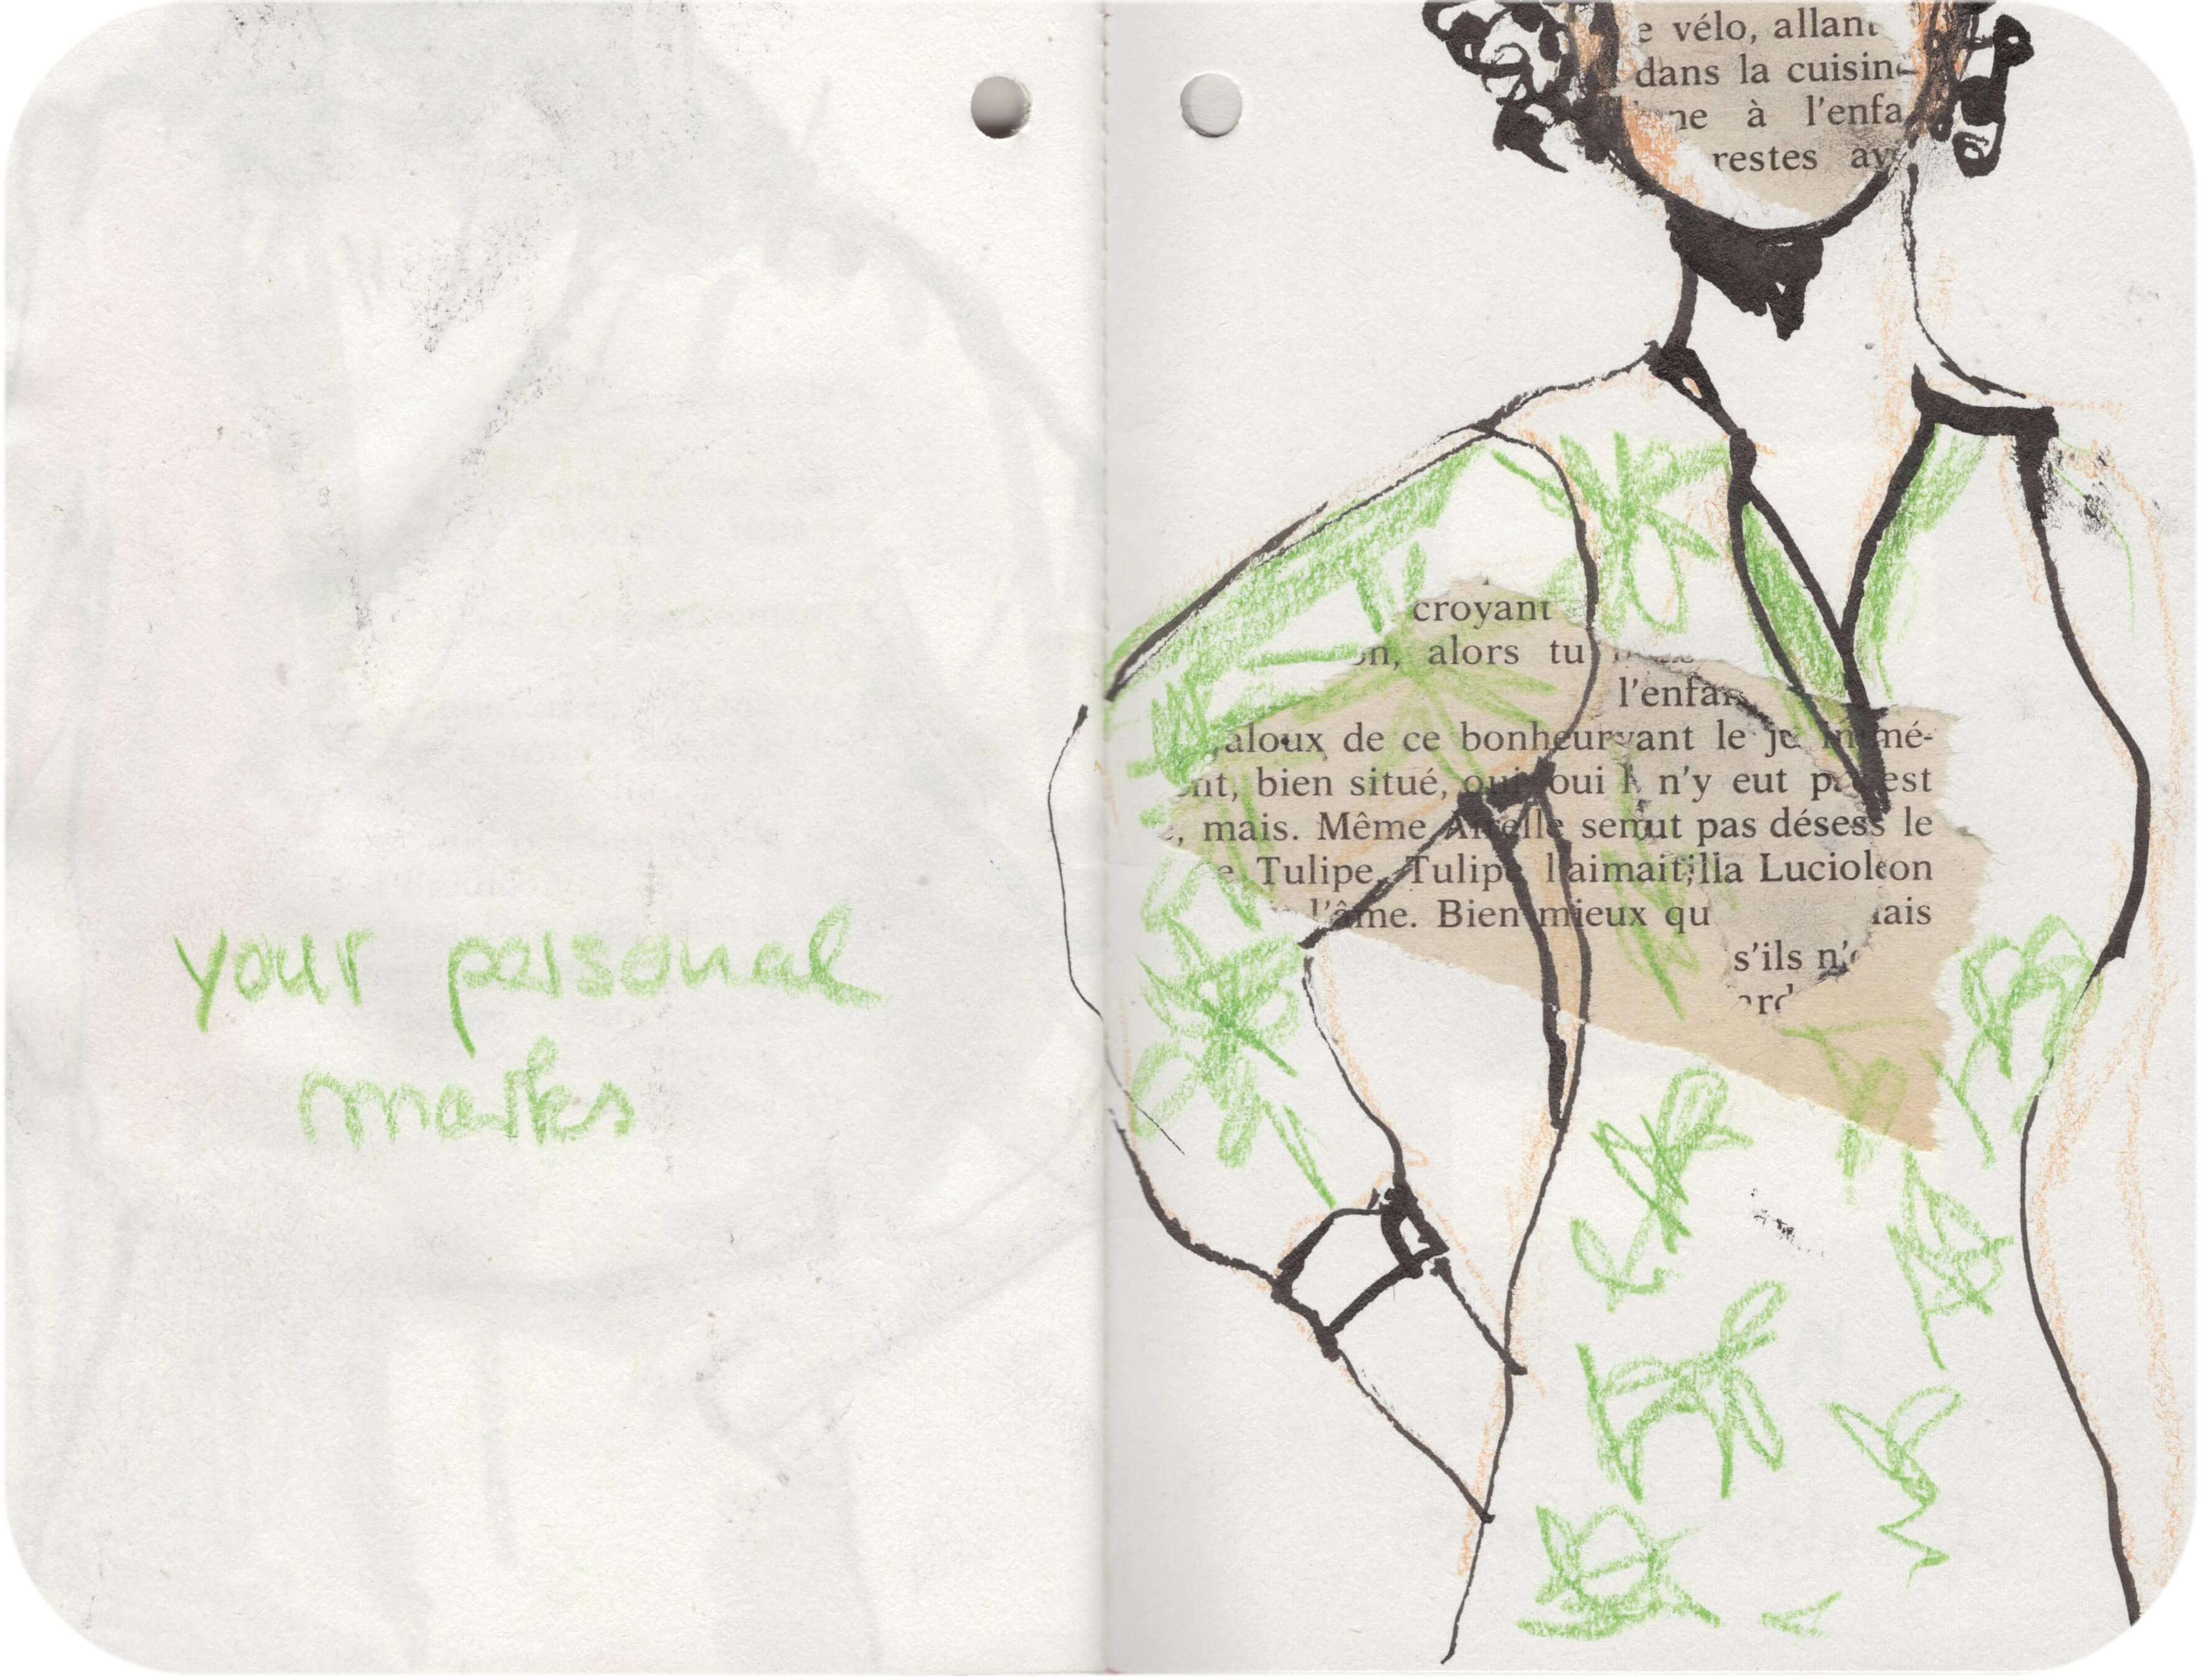 your personal
marks
e vélo, allant
dans la cuisine
ne à l'enfa
restes av
croyant
on, alors tu
l'enfan
jaloux de ce bonheur vant le je mé-
nt, bien situé, oui oui n'y eut pa est
, mais. Même semut pas désess le
e Tulipe. Tulipe l'aimait; illa Luciole on
l'âme. Bien mieux qu ais
s'ils n'e
ard